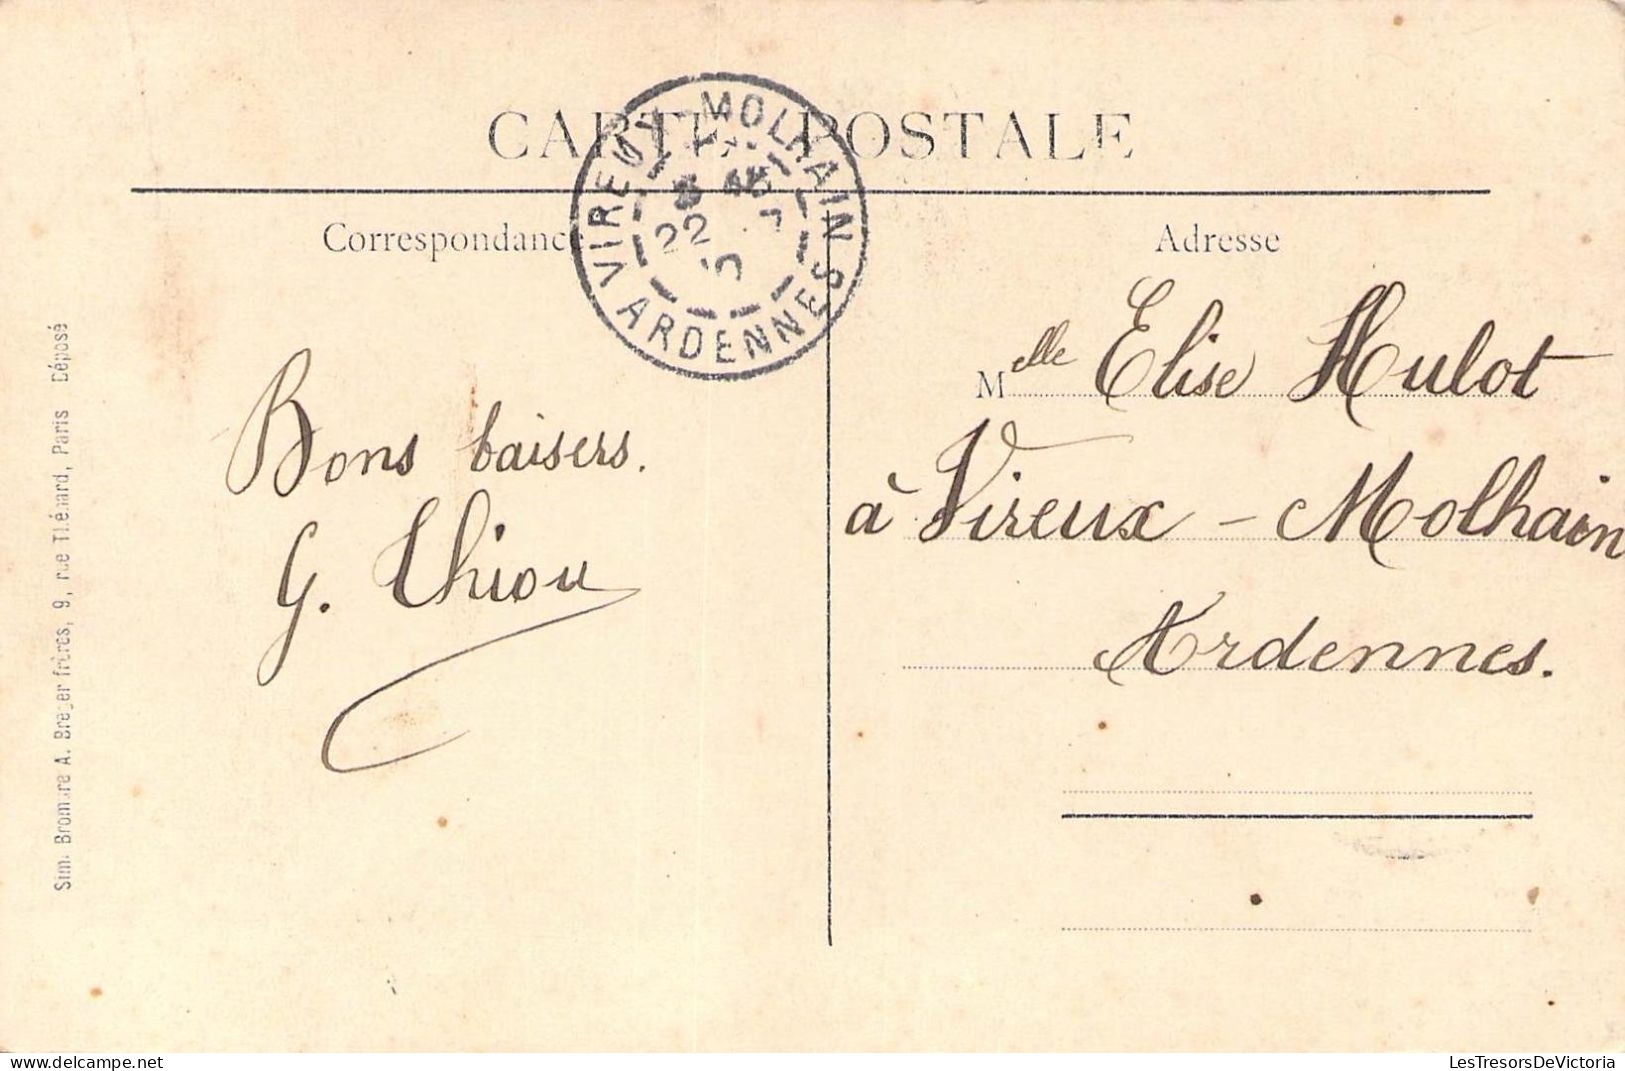 CARTE POSTALE
VIREUX-MOLHAIN
22
ARDENNES
Correspondance
Adresse
Bons baisers.
G. Thiou
Melle Elise Hulot
à Vireux - Molhain
Ardennes.
Sim. Bromure A. Breger frères, 9, rue Thénard, Paris Déposé
www.delcampe.net
LesTresorsDeVictoria